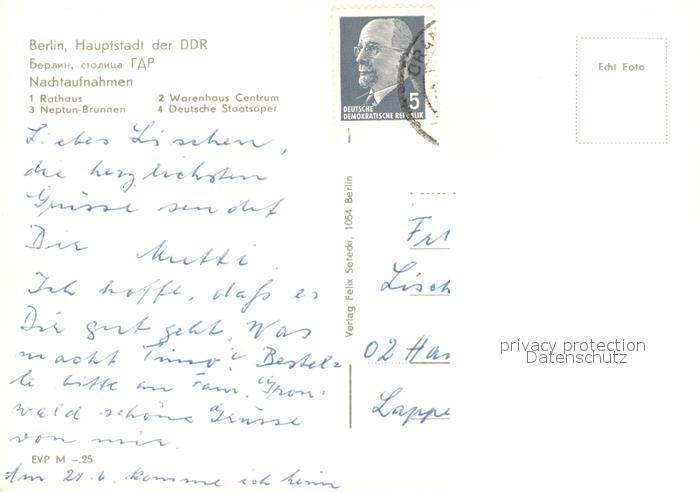 Berlin, Hauptstadt der DDR
Берлин, столица ГДР
Nachtaufnahmen
1 Rathaus 2 Warenhaus Centrum
3 Neptun-Brunnen 4 Deutsche Staatsoper
DEUTSCHE
DEMOKRATISCHE REPUBLIK 5
Echt Foto
Liebes Lischen,
die herzlichsten
Grüsse sendet
Dir Mutti.
Ich hoffe, daß es
Dir gut geht. Was
macht Timo? Bestel-
le bitte an Fam. Gron-
wald schöne Grüsse
von mir.
Am 21.6. komme ich heim
EVP M –.25
Verlag Felix Setecki, 1054 Berlin
Lisch
02 Ha
Lappe
privacy protection
Datenschutz